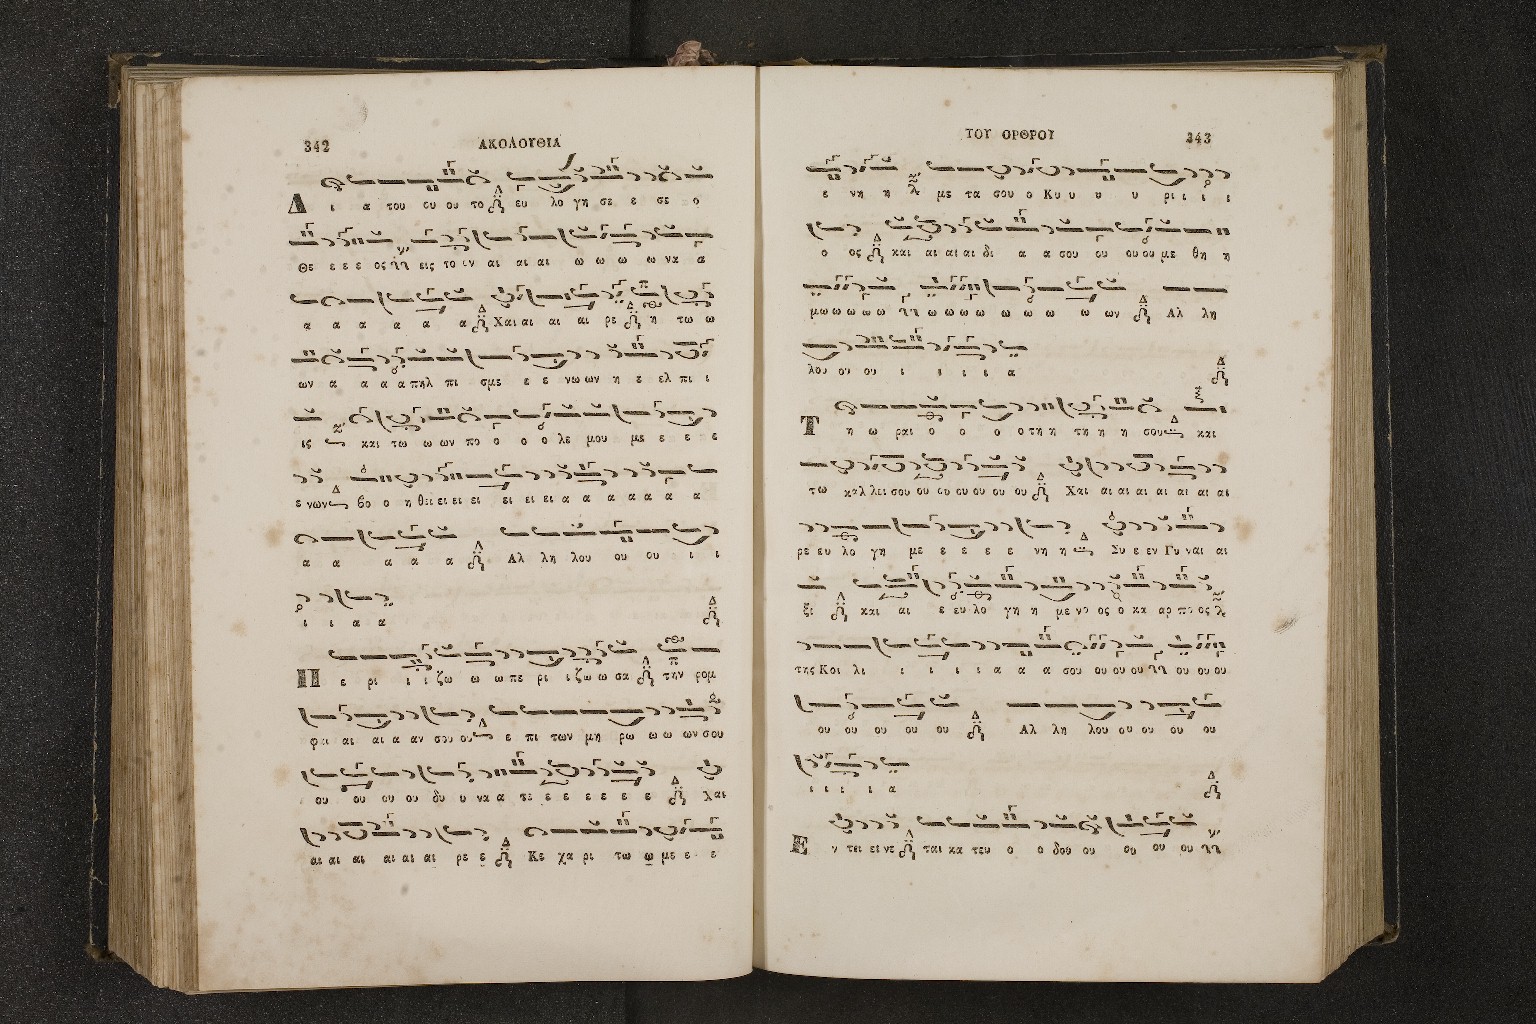 342 ΑΚΟΛΟΥΘΙΑ
Δ ι α του ου ου το ευ λο γη σε ε σε ο
Θε ε ε ε ος εις το αι αι αι ω ω ω ω να α
α α α α α α Χαι αι αι αι ρε η τω ω
ων α α α α πηλ πι σμε ε ε νω ων η ε ελ πι ι
ις και τω ω ων πο ο ο ο λε μου με ε ε ε
ε νων βο ο η θει ει ει ει ει ει ει α α α α α α α
α α α α α Αλ λη λου ου ου ι ι
ι ι α α
Π ε ρι ι ι ζω ω ω πε ρι ι ζω ω σα την ρομ
φαι αι αι α αν σου ου ε πι των μη ρω ω ω ων σου
ου ου ου ου δυ υ να α τε ε ε ε ε ε ε χαι
αι αι αι αι αι αι ρε ε Κε χα ρι τω ω με ε ε
ΤΟΥ ΟΡΘΡΟΥ 343
ε νη η με τα σου ο Κυ υ υ υ ρι ι ι ι
ο ος και αι αι αι δι α α σου ου ου ου με θη η
μω ω ω ω ω ω ω ω ω ω ω ω ω ων Αλ λη
λου ου ου ι ι ι ι α
Τ η ω ραι ο ο ο ο τη η τη η η σου και
τω καλ λει σου ου ου ου ου ου ου Χαι αι αι αι αι αι αι αι
ρε ευ λο γη με ε ε ε ε νη η Συ ε εν Γυ ναι αι
ξι και αι ε ευ λο γη η με νο ος ο κα αρ πο ος
της Κοι λι ι ι ι ι α α α σου ου ου ου ου ου ου
ου ου ου ου ου Αλ λη λου ου ου ου ου
ι ι ι ι α
Ε ν τει ει νε ται κα τευ ο ο δου ου ου ου ου